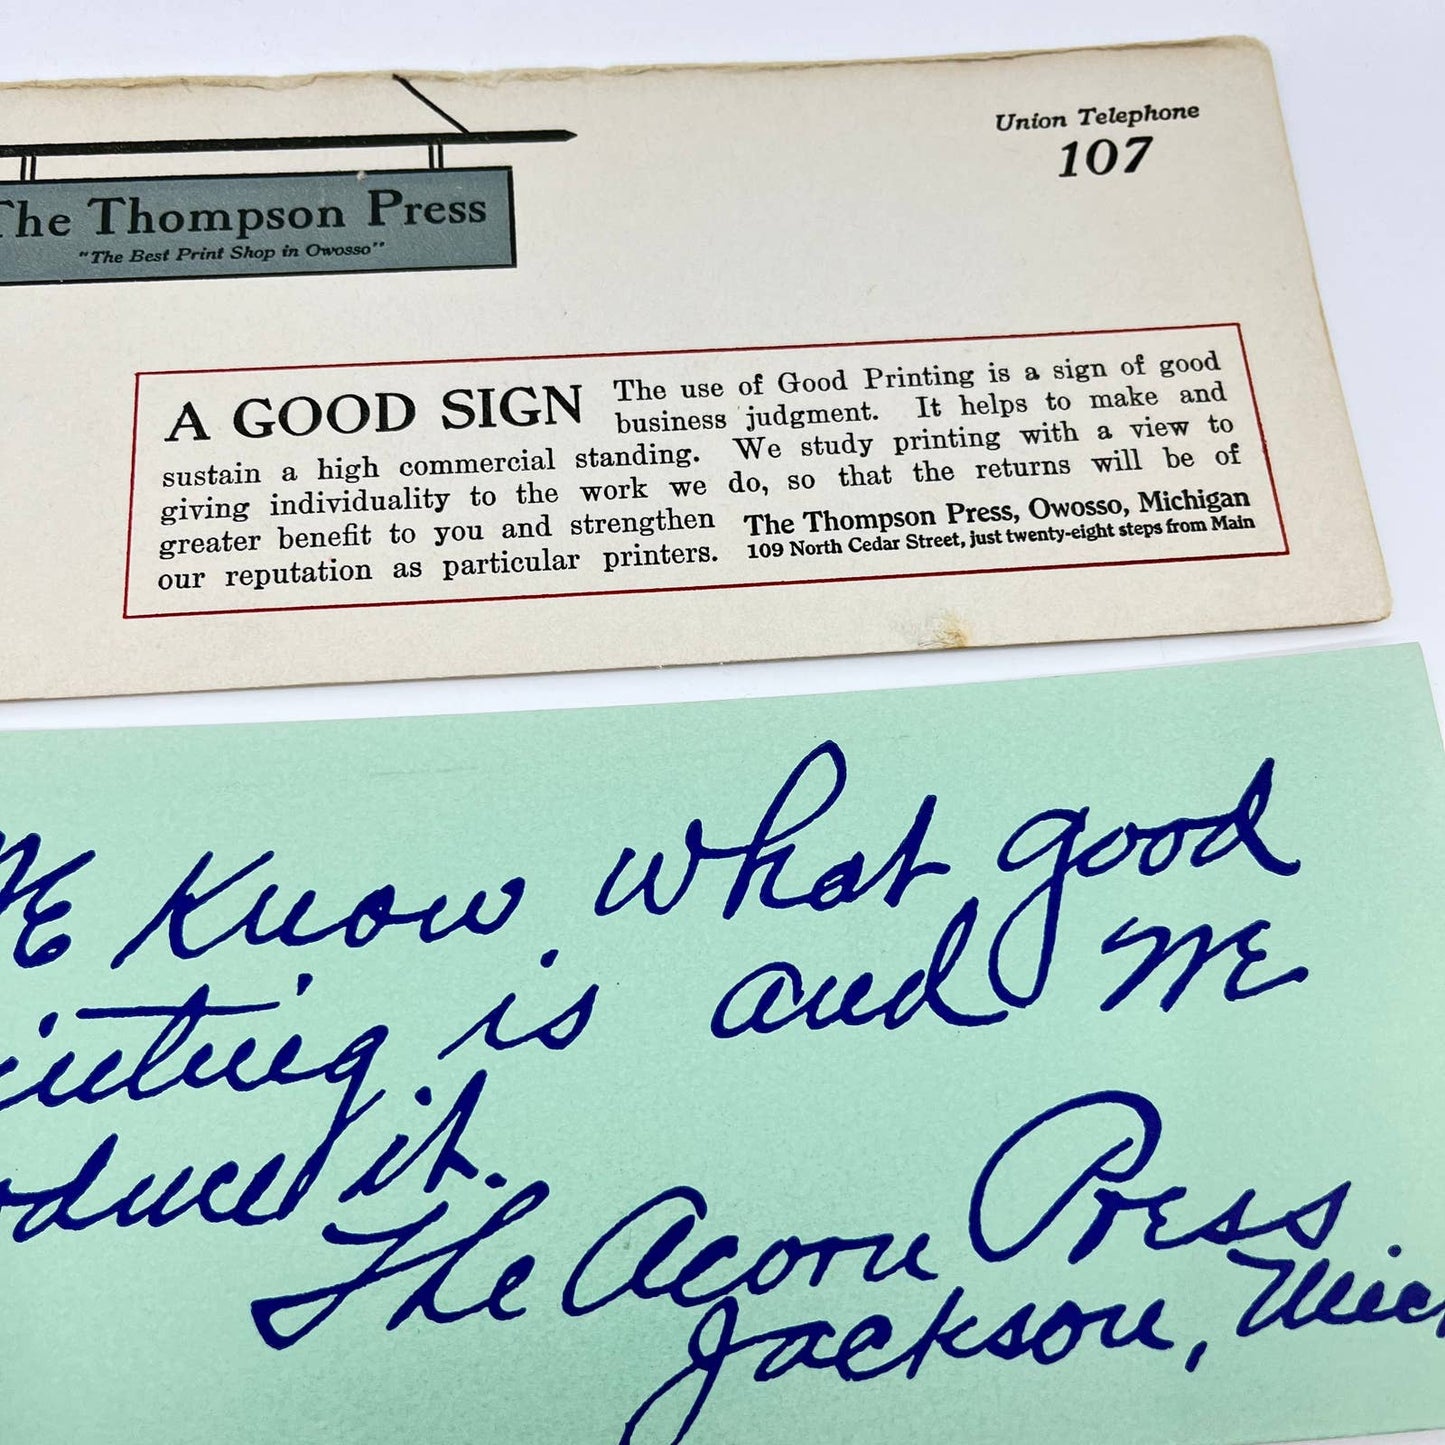 Union Telephone
107
The Thompson Press
"The Best Print Shop in Owosso"
A GOOD SIGN The use of Good Printing is a sign of good
business judgment. It helps to make and
sustain a high commercial standing. We study printing with a view to
giving individuality to the work we do, so that the returns will be of
greater benefit to you and strengthen The Thompson Press, Owosso, Michigan
our reputation as particular printers. 109 North Cedar Street, just twenty-eight steps from Main
We know what good
inting is and we
oduce it.
The Acorn Press
Jackson, Mich